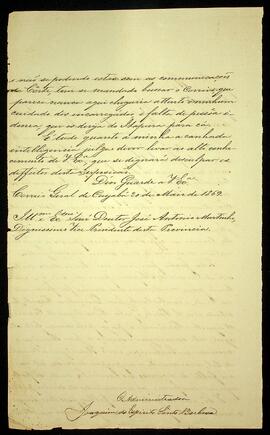 e não se podendo estar sem as communicações
da Côrte, tem se mandado buscar o Correio, que
parece nunca aqui chegaria attento o nenhum
cuidado dos encarregados, e falta de pessôa i-
donea que os dirija de Itapura para cá.
É tudo quanto a minha acanhada
intelligencia julga dever levar ao alto conhe-
cimento de V Exª que se dignará desculpar os
deffeitos desta
Deos Guarde a V Exª
Correio Geral de Cuyabá 20 de Maio de 1869.
Illmo e Exmo Senr Doutor José Antonio Murtinho
Dignissimo Vice Presidente desta Provincia
O Administrador
Joaquim do Espirito Santo Barbosa